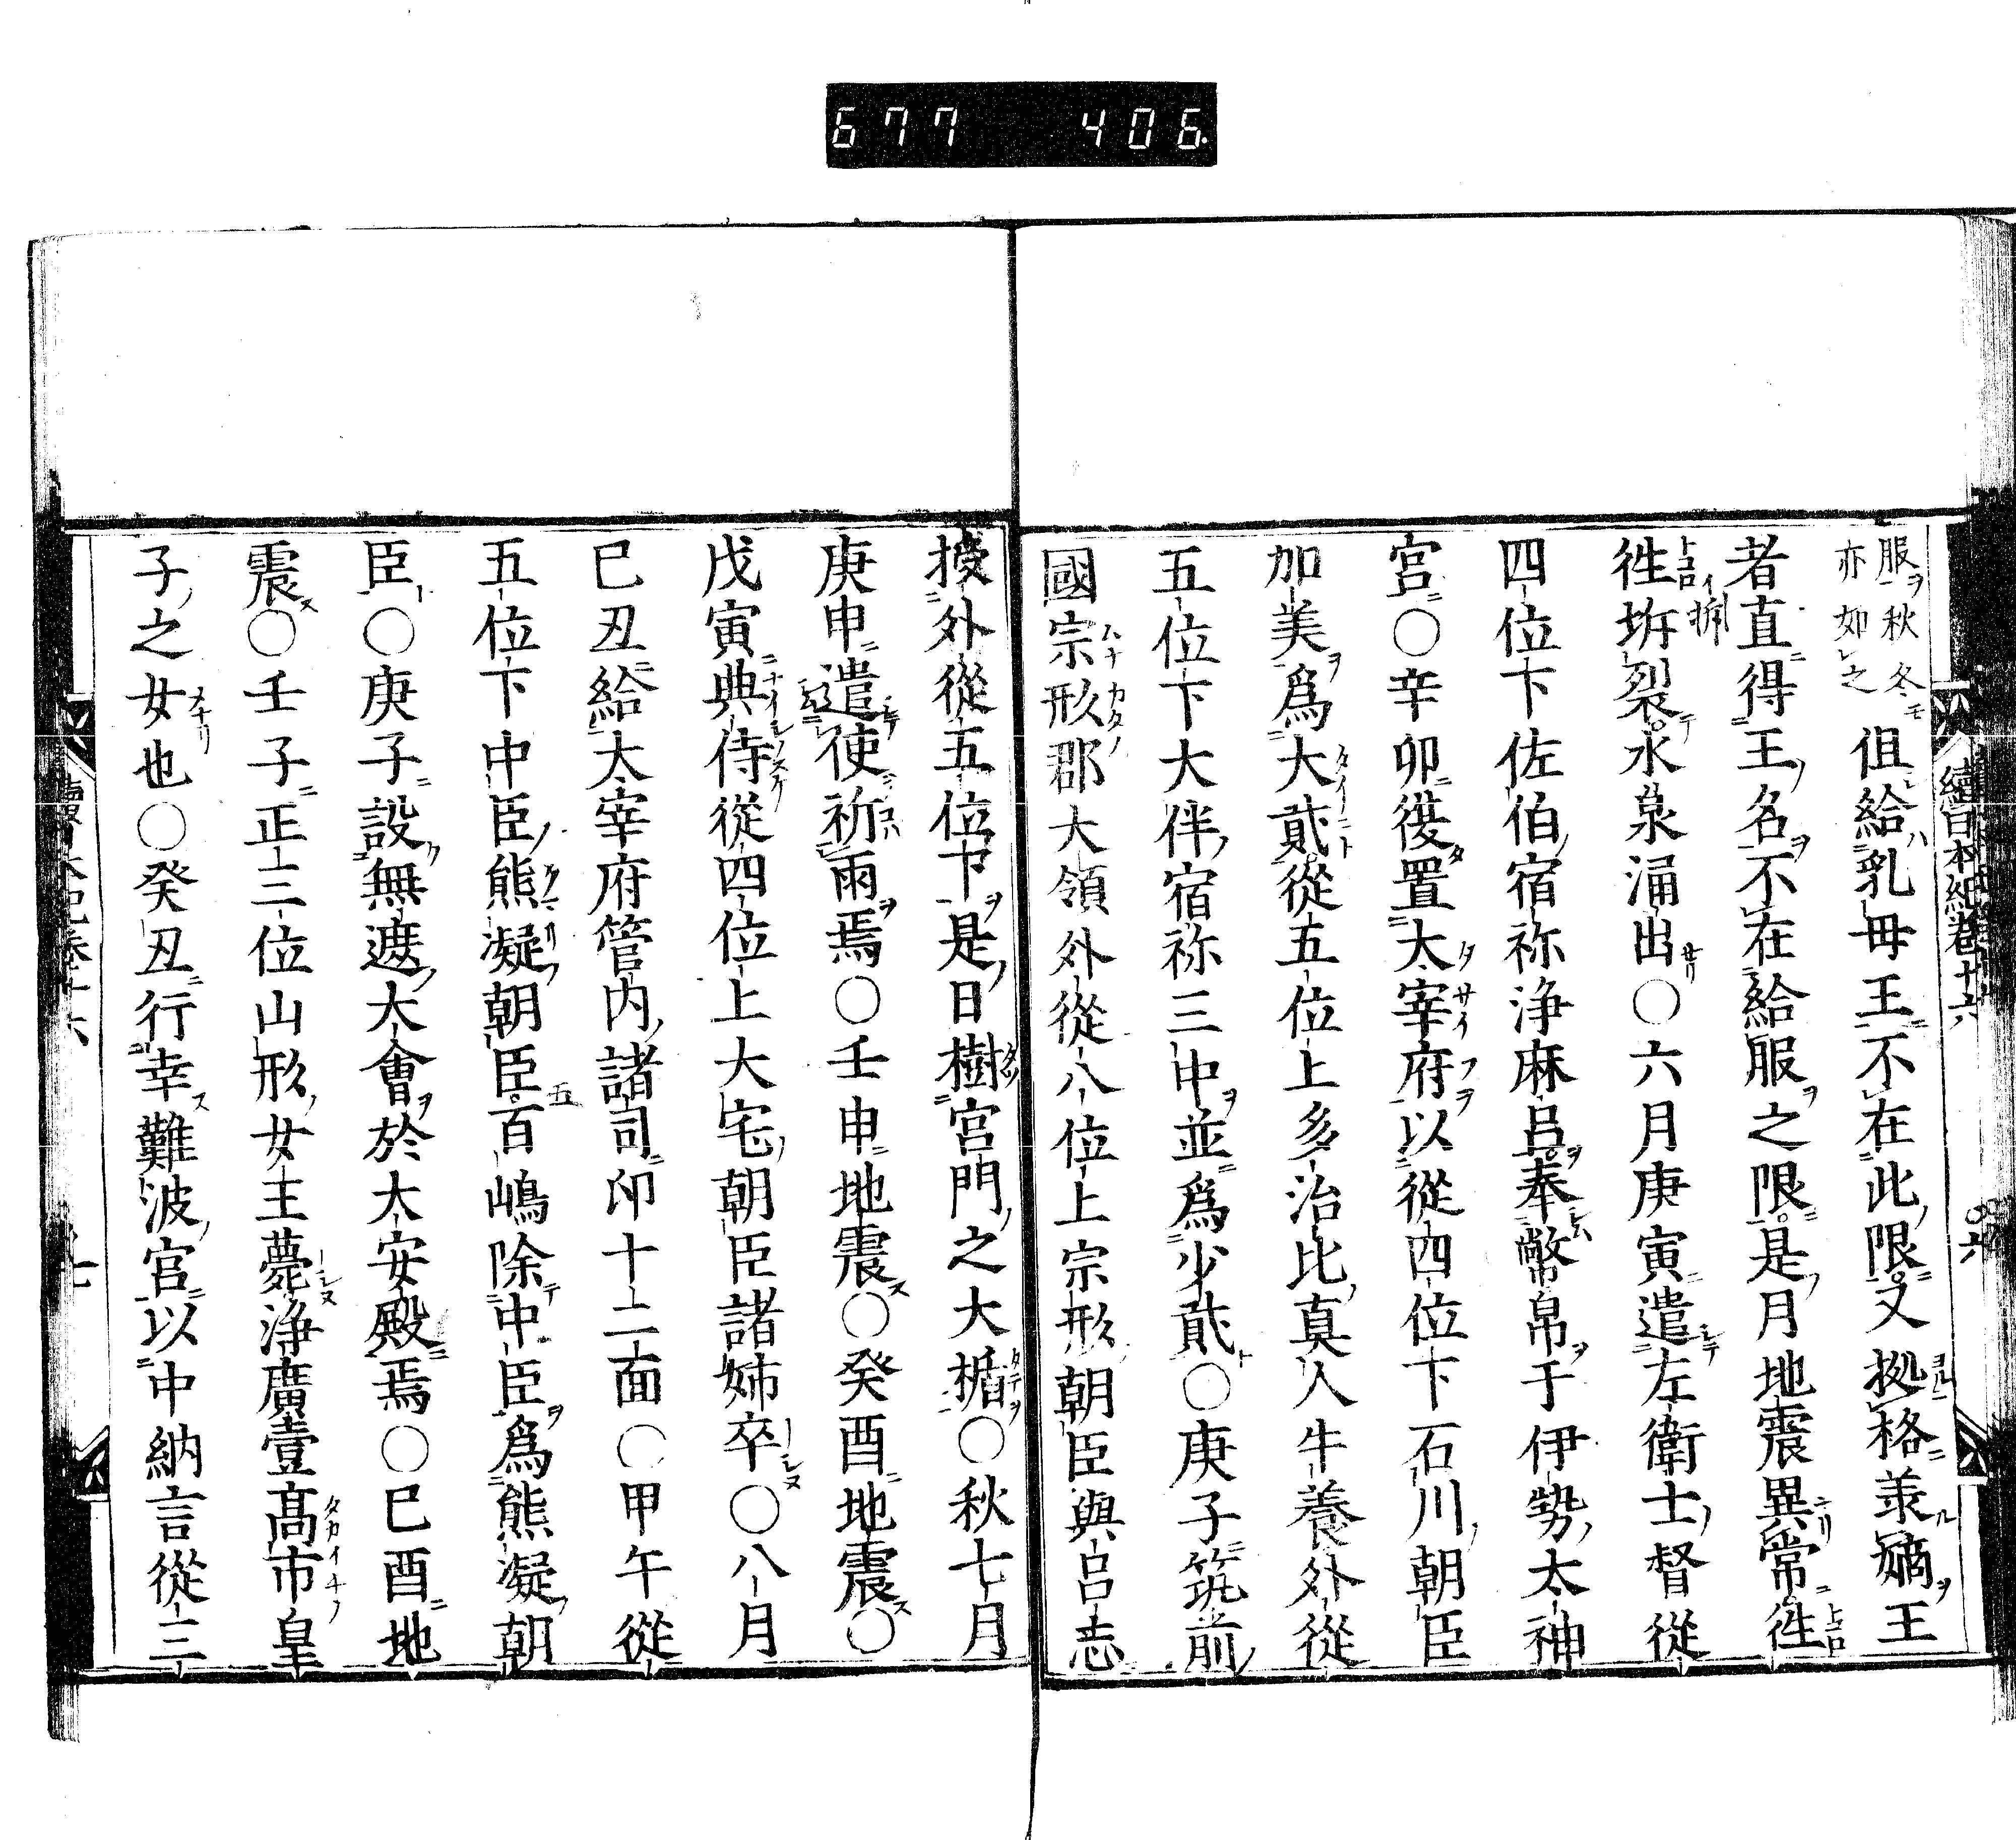 677 406
續日本紀卷十六
○六
服秋冬亦如之但給乳母王不在此限又拠格兼嫡王
者直得王名不在給服之限是月地震異常徃
徃坼裂水泉涌出○六月庚寅遣左衛士督從
四位下佐伯宿祢浄麻呂奉幣帛于伊勢太神
宮○辛卯復置太宰府以從四位下石川朝臣
加美爲大貳從五位上多治比真人牛養外從
五位下大伴宿祢三中並爲少貳○庚子筑前
國宗形郡大領外從八位上宗形朝臣與呂志
授外從五位下是日樹宮門之大楯○秋七月
庚申遣使祈雨焉○壬申地震○癸酉地震○
戊寅典侍從四位上大宅朝臣諸姉卒○八月
己丑給太宰府管内諸司印十二面○甲午從
五位下中臣熊凝朝臣五百嶋除中臣爲熊凝朝
臣○庚子設無遮大會於大安殿焉○己酉地
震○壬子正三位山形女王薨浄廣壹髙市皇
子之女也○癸丑行幸難波宮以中納言從三
七